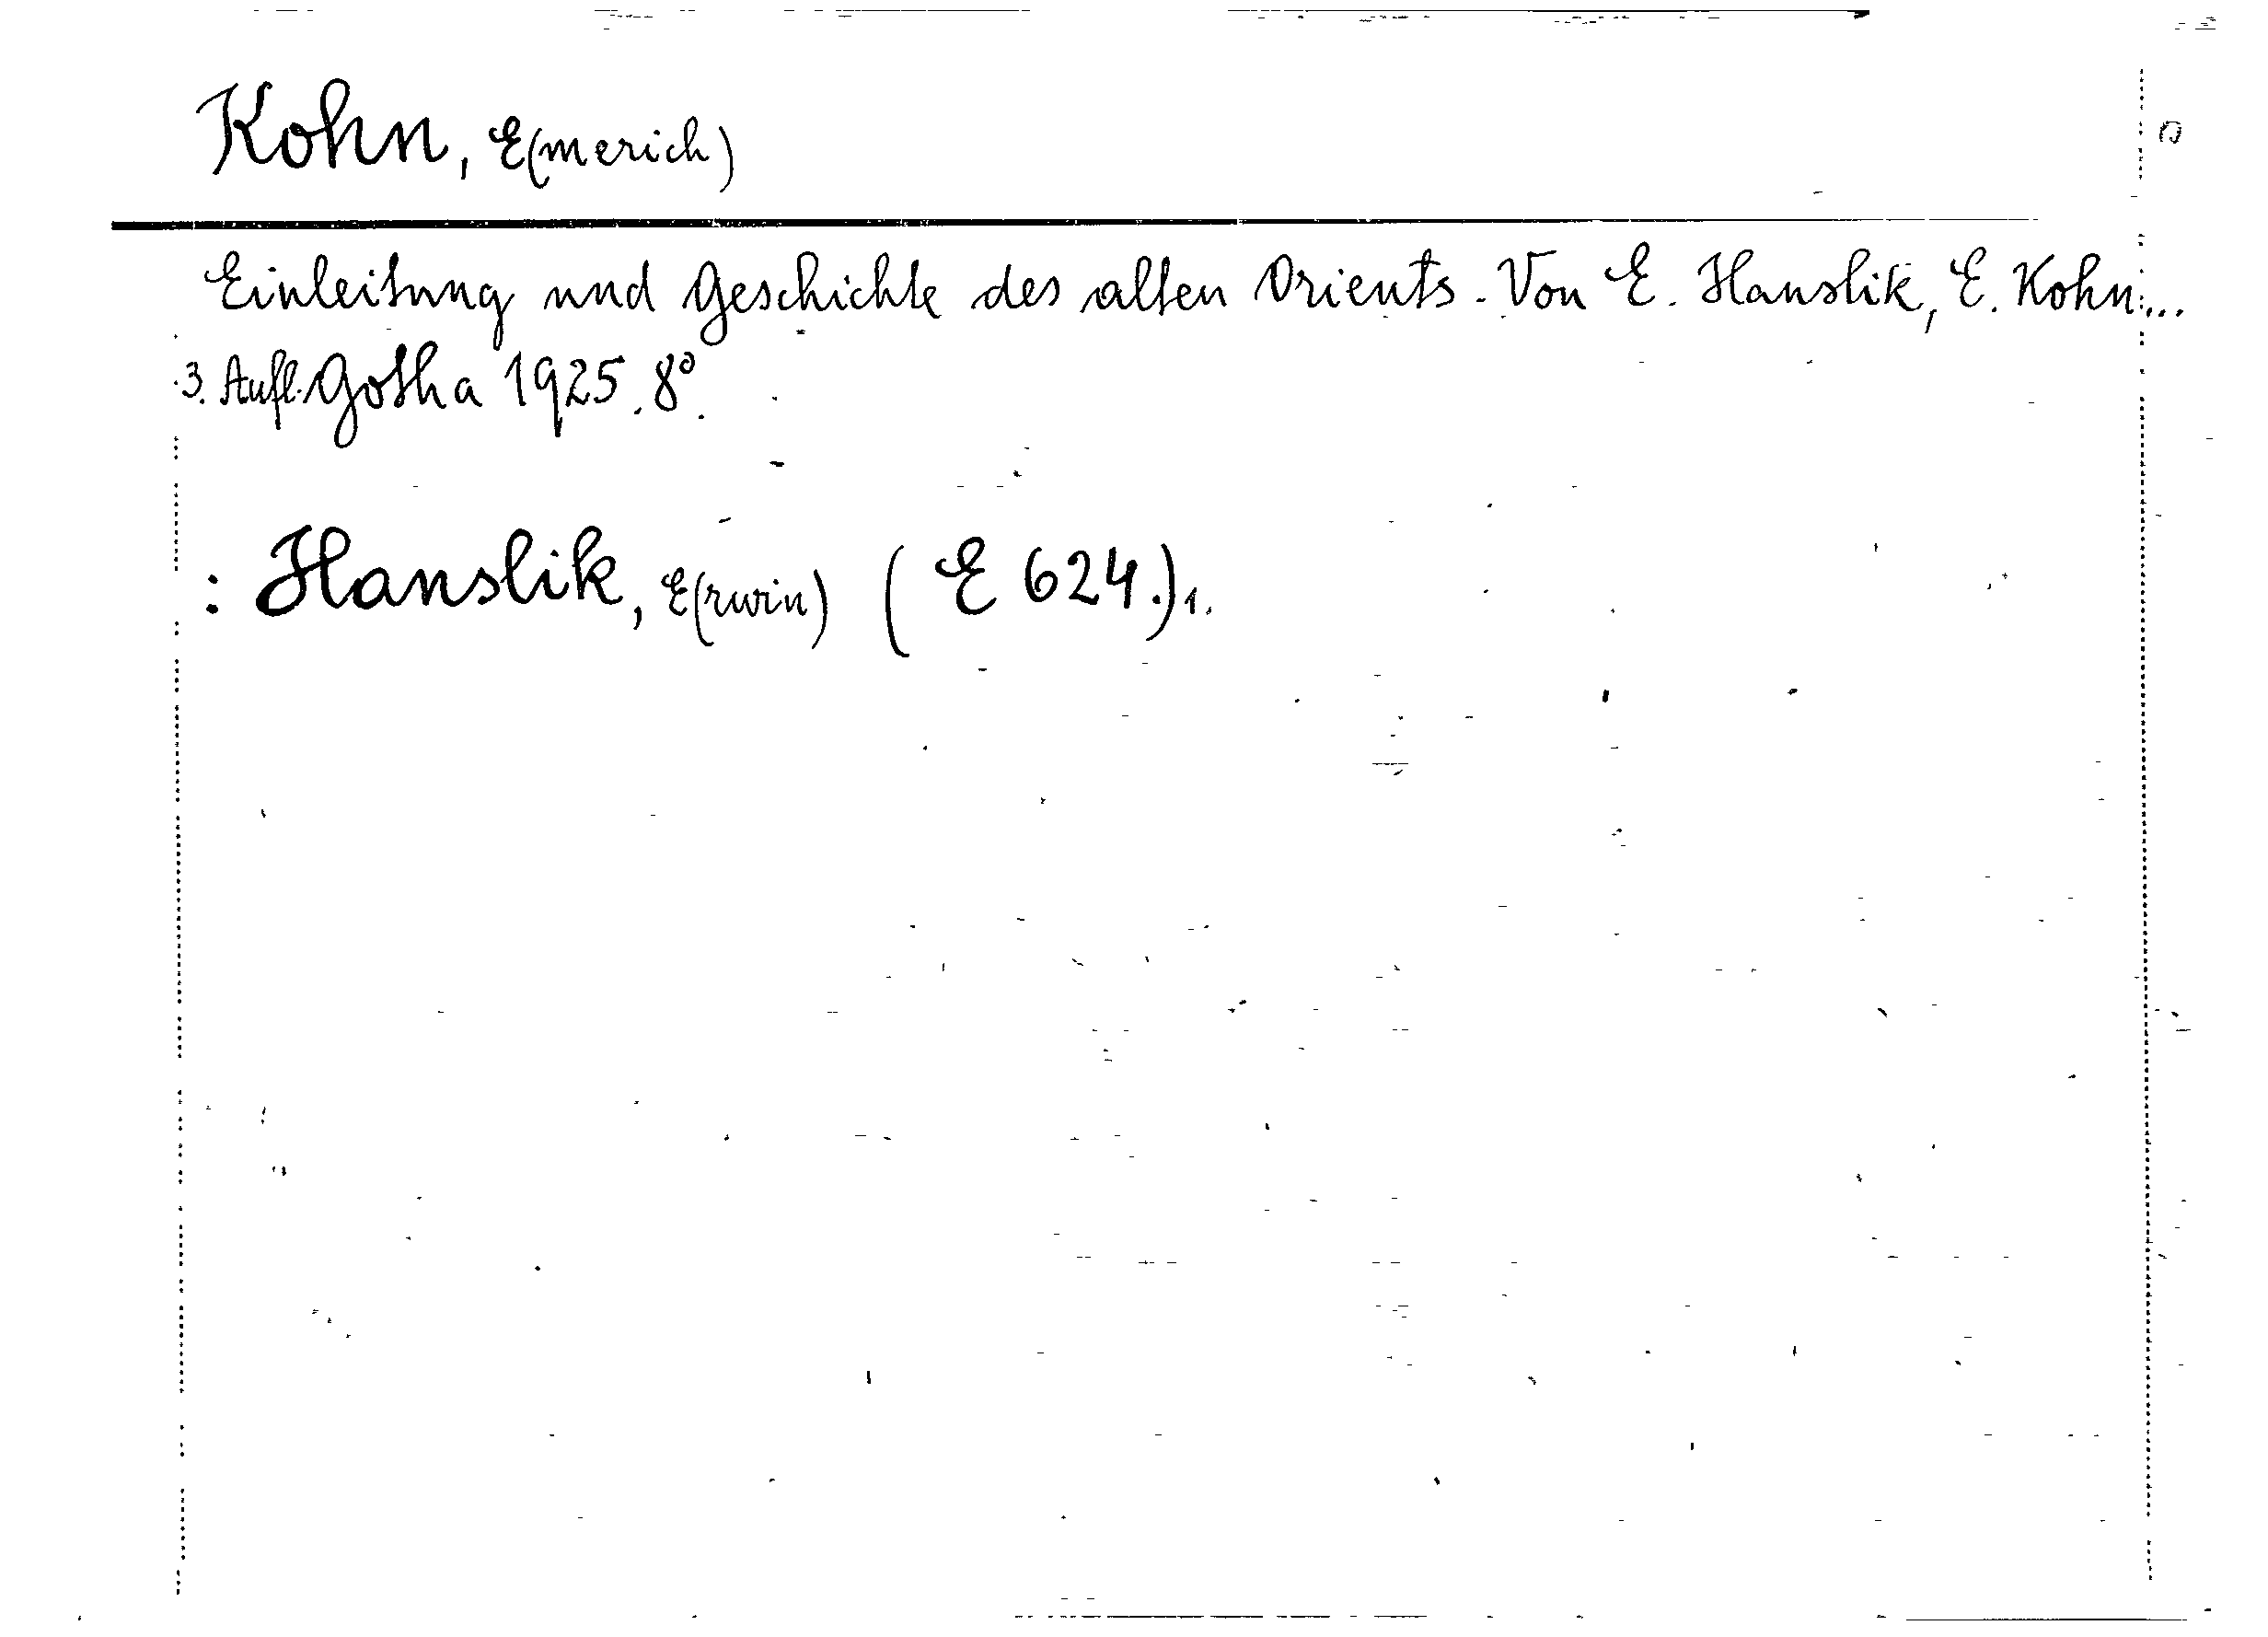 Kohn, E(merich)
Einleitung und Geschichte des alten Orients. Von E. Hanslik, E. Kohn...
3. Aufl. Gotha 1925. 8°.
: Hanslik, E(rwin) (E 624.)1.